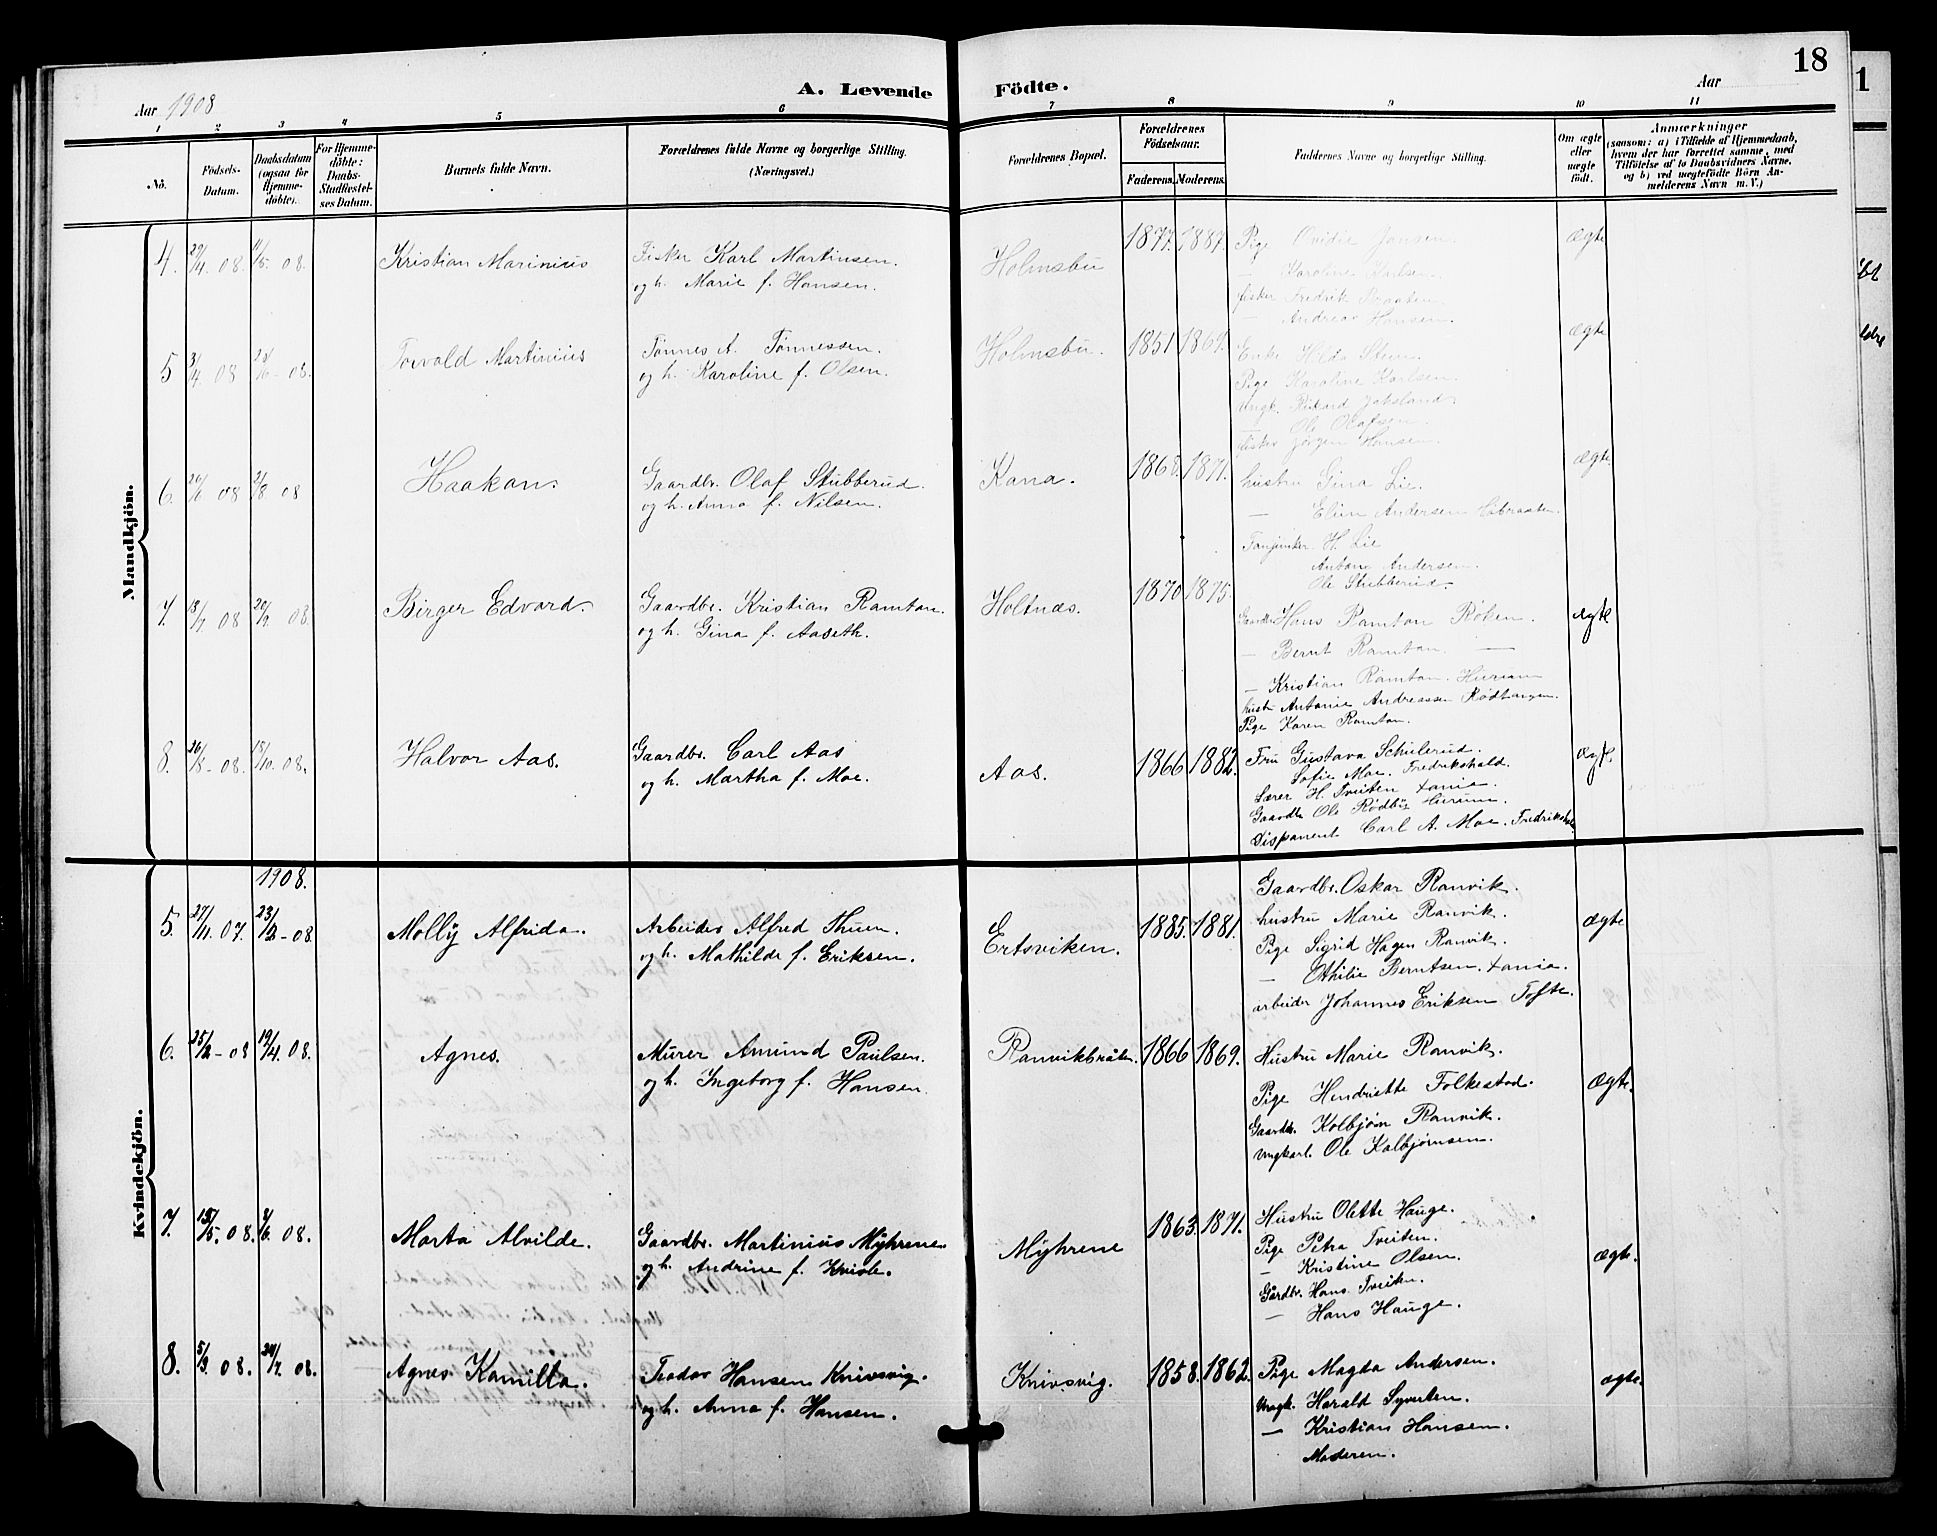 18
Aar 1908 A. Levende Födte. Aar
1 2 3 4 5 6 7 8 9 10 11
No.
Födsels-Datum.
Daabsdatum (ogsaa for Hjemmedöbte).
For Hjemmedöbte: Daabs-Stadfæstelses Datum.
Barnets fulde Navn.
Forældrenes fulde Navne og borgerlige Stilling.
(Næringsvei.)
Forældrenes Bopæl.
Forældrenes Födselsaar.
Faderens. Moderens.
Faddernes Navne og borgerlige Stilling.
Om ægte eller uægte födt.
Anmærkninger
(saasom: a) i Tilfælde af Hjemmedaab,
hvem der har forrettet samme, med
Tilföielse af to Daabsvidners Navne.
og b) ved uægtefödte Börn An-
melderens Navn m. V.)
Mandkjön.
4. 29/4 08. 11/5. 08. Kristian Marinius Fisker Karl Martinsen. Holmsbu 1877. 1887. Pige Ovidie Jansen. Ægte
og h. Marie f. Hansen. — Karoline Karlsen.
fisker Fredrik Braaten.
— Andreas Hansen.
5 3/4 08 08. Torvald Martinius Tönnes A. Tönnessen. Holmsbu. 1851 1869. Enke Hilda Steen. Ægte
og h. Karoline f. Olsen. Pige Karoline Karlsen.
Ungk. Rikard Jaksland.
— Ole Olafsen.
fisker Jörgen Hansen.
6. 08 2/8 08 Haakon. Gaardbr. Olaf Stubberud. Kana. 1868. 1871. hustru Gina Lie. Ægte.
og h. Anna f. Nilsen. — Andersen
H. Lie
Anton Andersen.
Ole Stubberud.
7. 18/7 08 08. Birger Edvard. Gaardbr. Kristian Ramton. Holtnæs. 1870 1875. Gaardbr. Hans Ramton Röken. ægte
og h. Gina f. Aaseth. — Bernt Ramton. —
— Kristian Ramton. Hurum
hustru Antonie Andreassen Rödtangen.
Pige Karen Ramton.
8. 26/8-08. 18/10. 08. Halvor Aas. Gaardbr. Carl Aas Aas. 1866 1882. Fru Gustava Schulerud. Ægte.
og h. Martha f. Moe. Sofie Moe. Fredrikshald.
Lærer H. Tveiten
Gaardbr. Ole Rödby Hurum.
Disponent Carl A. Moe. Fredrikshald
Kvindekjön.
1908.
5. 27/11. 07. 23/2-08 Molly Alfrida. Arbeider Alfred Thuen. Ertsviken. 1885. 1881. Gaardbr. Oskar Ranvik. Ægte
og h. Mathilde f. Eriksen. hustru Marie Ranvik.
Pige Sigrid Hagen Ranvik.
— Othilie Berntsen.
arbeider Johannes Eriksen Tofte.
6. 25/2-08 19/4. 08. Agnes. Murer Amund Paulsen. Ranvikbråten. 1866 1869. Hustru Marie Ranvik. Ægte.
og h. Ingeborg f. Hansen. Pige Hendriette Folkestad.
Gaardbr. Kolbjörn Ranvik.
ungkarl. Ole Kolbjörnsen.
7. 15/5. 08. 8/6. 08. Marta Alvilde. Gaardbr. Martinius Myhrene. Myhrene 1863. 1871. Hustru Olette Hauge. Ægte.
og h. Andrine f. Kvisle. Pige Petra Tveiten.
— Kristine Olsen.
Gårdbr. Hans Tveiten.
— Hans Hauge.
8. 5/3. 08. 08. Agnes Kamilla. Teodor Hansen Knivsvig. Knivsvig. 1858. 1862. Pige Magda Andersen. ægte.
og h. Anna f. Hansen. ungk. Harald Syverten.
— Kristian Hansen.
Moderen.